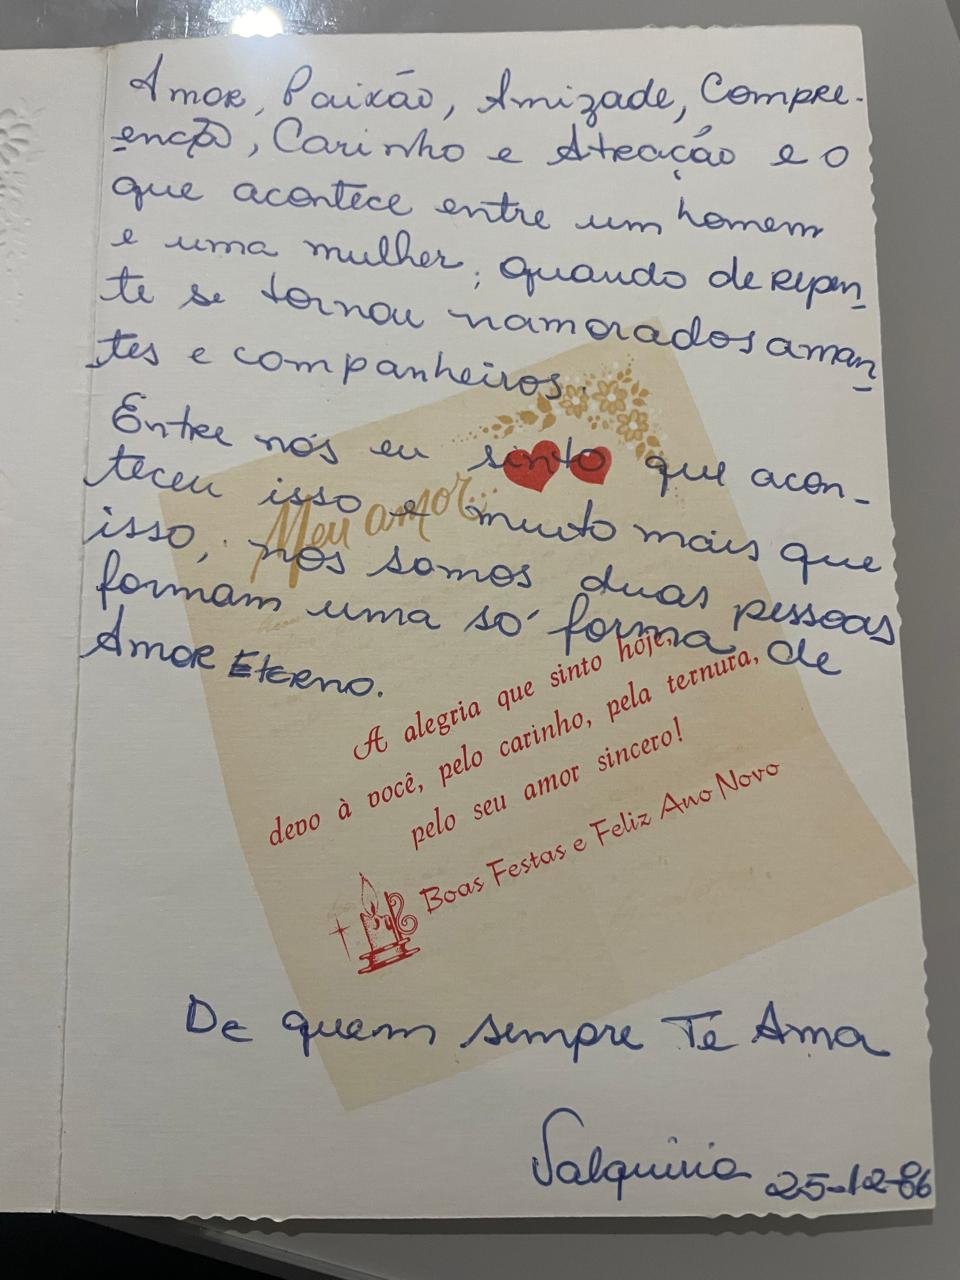 Amor, Paixão, Amizade, Compre-
enção, Carinho e Atração e o
que acontece entre um homem
e uma mulher, quando de repen_
te se tornou namorados aman_
tes e companheiros.
Entre nós eu sinto que acon_
teceu isso e muito mais que
isso, nós somos duas pessoas
formam uma só forma de
Amor Eterno.
Meu amor...
A alegria que sinto hoje,
devo à você, pelo carinho, pela ternura,
pelo seu amor sincero!
Boas Festas e Feliz Ano Novo
De quem sempre Te Ama
Valquiria 25-12-86